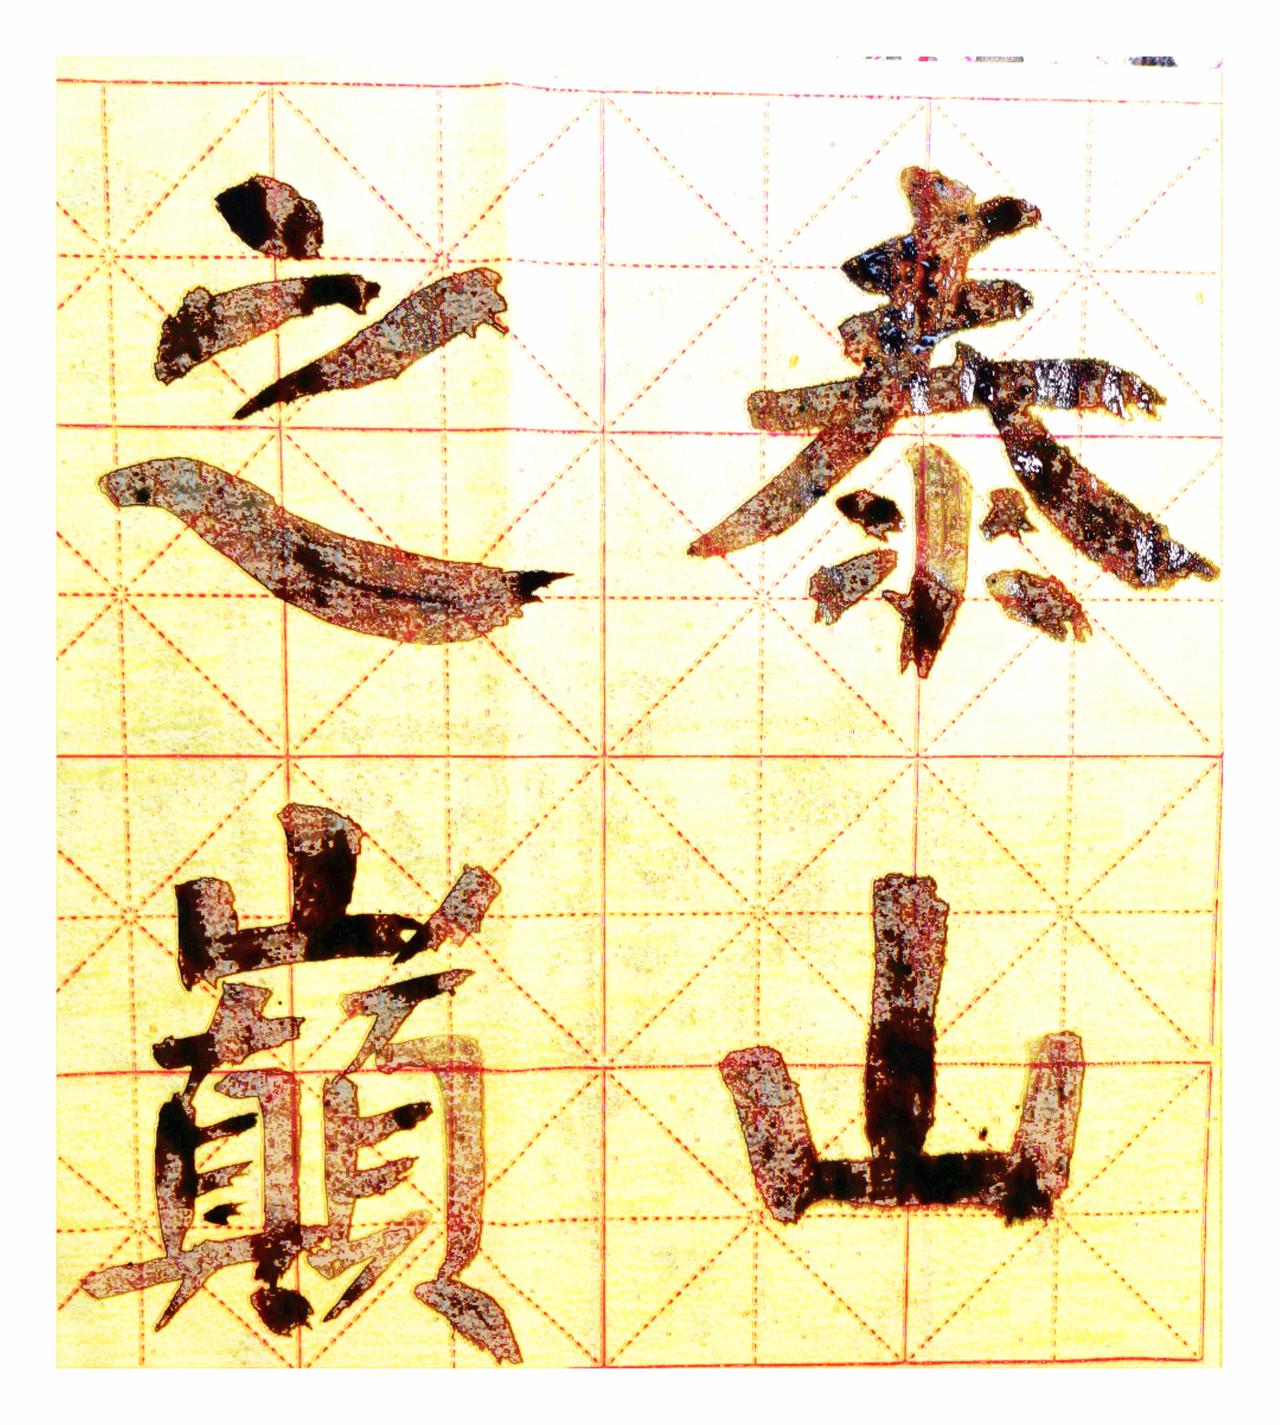 泰山
之巔